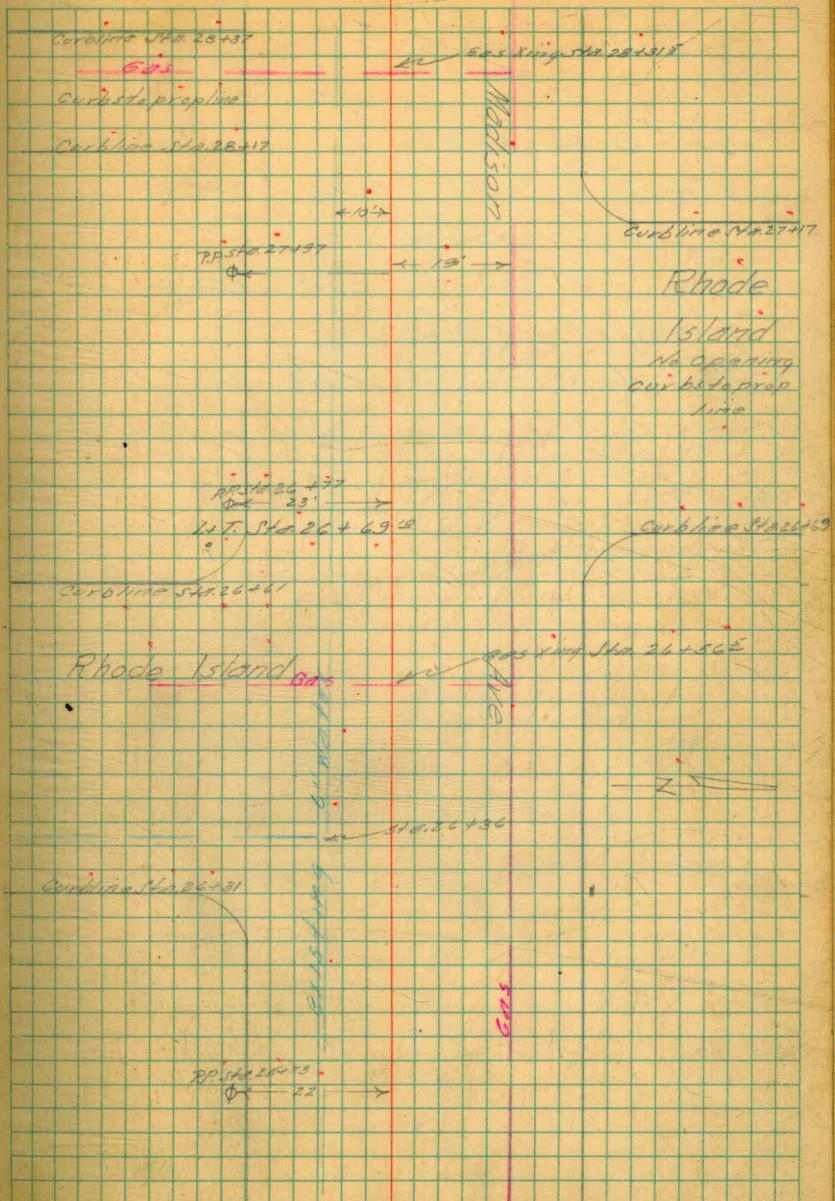 Curbline Sta. 28+37
Gas
Gas Xing Sta. 28+31⁵
Curbs to prop line
Madison
Curbline Sta. 28+17
10'
Curbline Sta. 27+17
P.P. Sta. 27+97
19'
Rhode
Island
No Opening
curbs to prop
line
P.P. Sta. 26+77
23'
L+T. Sta. 26+69
Curbline Sta. 26+69
Curbline Sta. 26+61
Gas Xing Sta. 26+56⁵
Rhode Island
Gas
Ave
existing 6" Water
Sta. 26+36
Curbline Sta. 26+31
Gas
P.P. Sta.
22